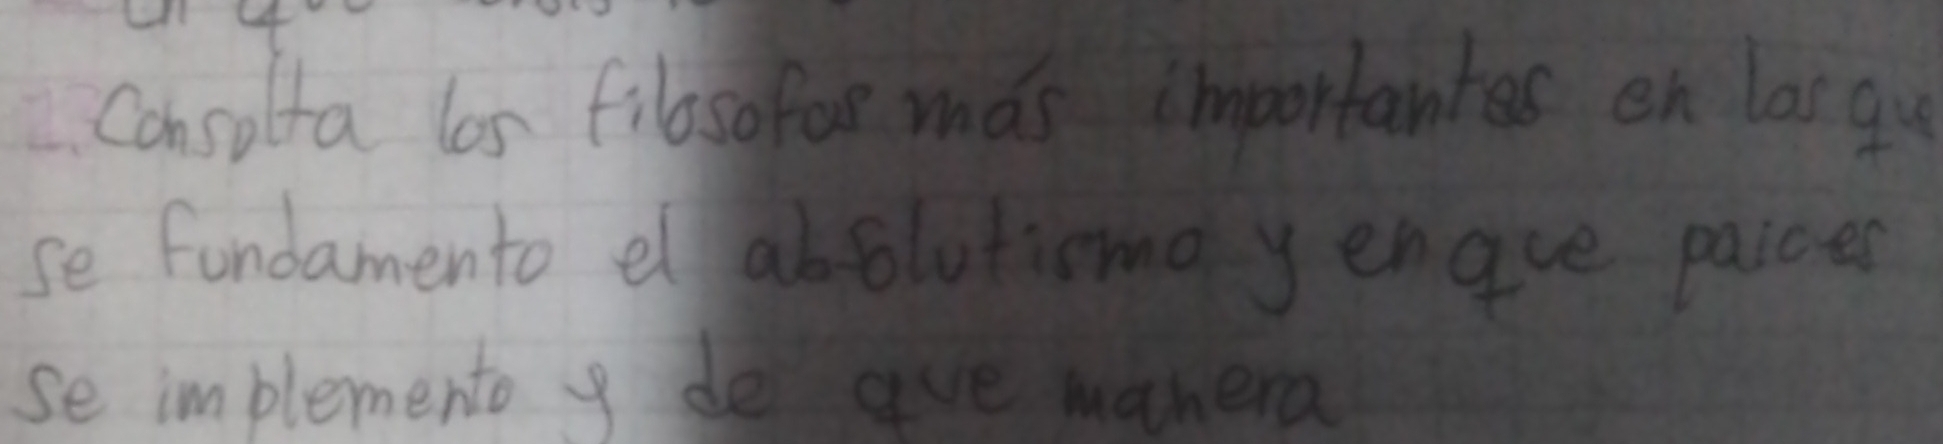 2. Consulta los filosofos más importantes en los que
se fundamento el absolutismo y en que paices
se implemento y de que manera